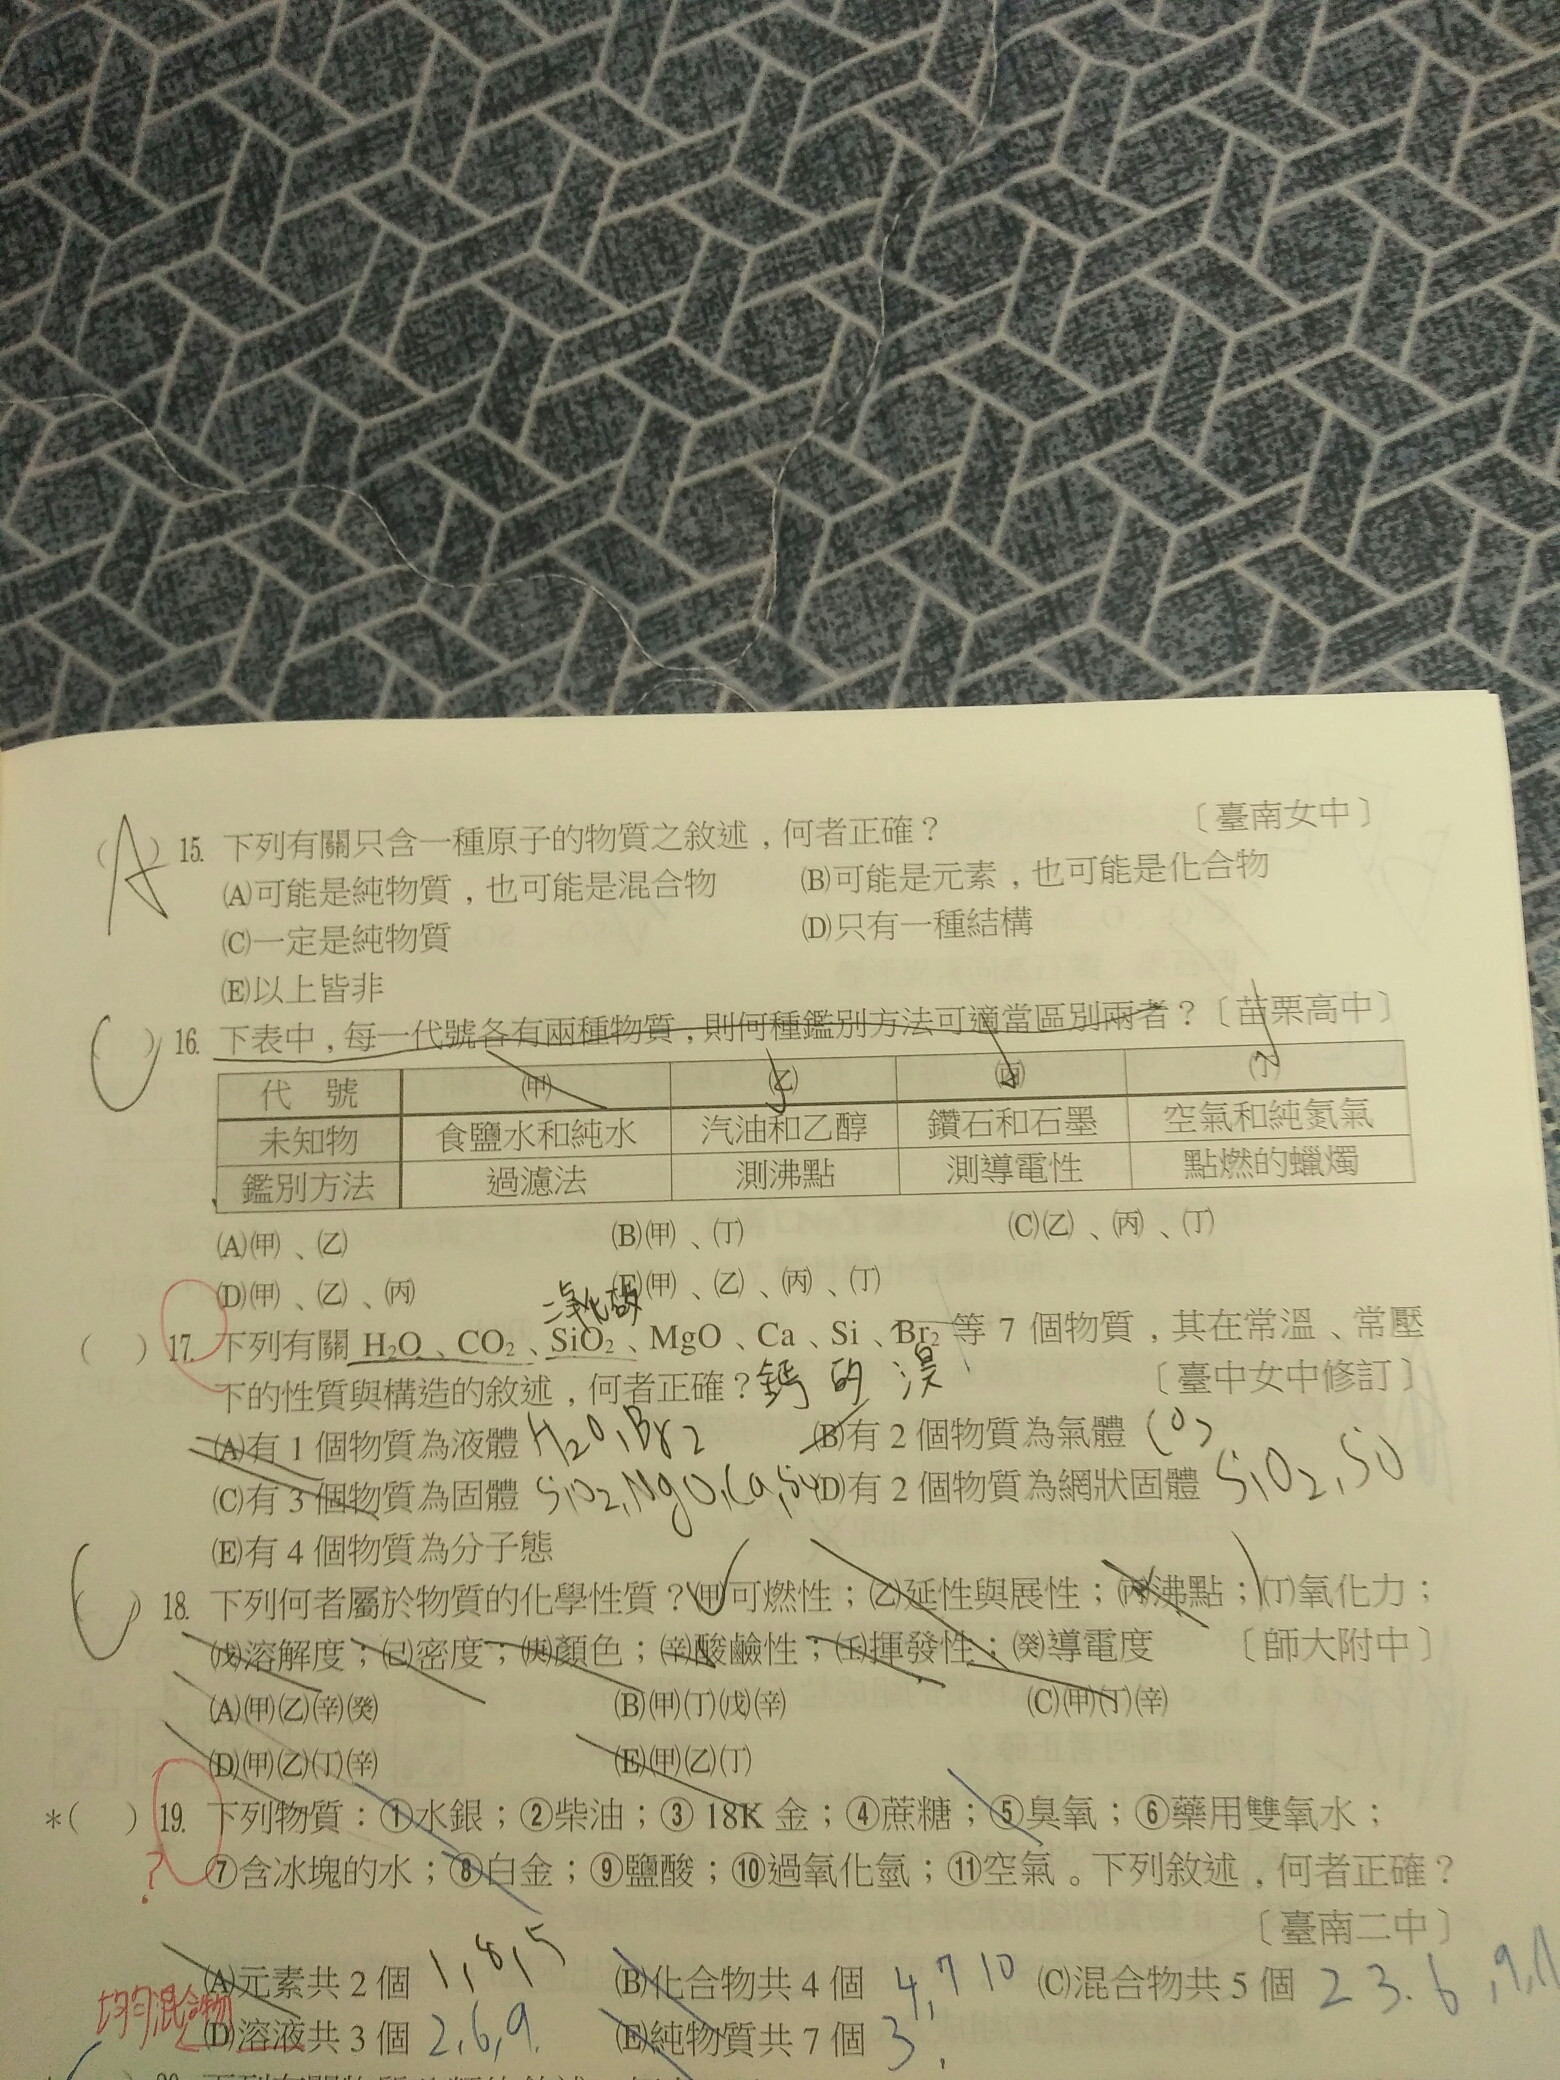 (A) 15. 下列有關只含一種原子的物質之敘述，何者正確？〔臺南女中〕
(A)可能是純物質，也可能是混合物 (B)可能是元素，也可能是化合物
(C)一定是純物質 (D)只有一種結構
(E)以上皆非
(C) 16. 下表中，每一代號各有兩種物質，則何種鑑別方法可適當區別兩者？〔苗栗高中〕
代號 (甲) (乙) (丙) (丁)
未知物 食鹽水和純水 汽油和乙醇 鑽石和石墨 空氣和純氮氣
鑑別方法 過濾法 測沸點 測導電性 點燃的蠟燭
(A)(甲)、(乙) (B)(甲)、(丁) (C)(乙)、(丙)、(丁)
(D)(甲)、(乙)、(丙) (E)(甲)、(乙)、(丙)、(丁)
二氧化
( ) 17. 下列有關 H₂O、CO₂、SiO₂、MgO、Ca、Si、Br₂ 等 7 個物質，其在常溫、常壓
下的性質與構造的敘述，何者正確？鈣 矽 溴〔臺中女中修訂〕
(A)有 1 個物質為液體 H₂O,Br₂ (B)有 2 個物質為氣體 CO₂
(C)有 3 個物質為固體 SiO₂,MgO,Ca,Si (D)有 2 個物質為網狀固體 SiO₂,Si
(E)有 4 個物質為分子態
(C) 18. 下列何者屬於物質的化學性質？(甲)可燃性；(乙)延性與展性；(丙)沸點；(丁)氧化力；
(戊)溶解度；(己)密度；(庚)顏色；(辛)酸鹼性；(壬)揮發性；(癸)導電度〔師大附中〕
(A)(甲)(乙)(辛)(癸) (B)(甲)(丁)(戊)(辛) (C)(甲)(丁)(辛)
(D)(甲)(乙)(丁)(辛) (E)(甲)(乙)(丁)
*( ) 19. 下列物質：①水銀；②柴油；③ 18K 金；④蔗糖；⑤臭氧；⑥藥用雙氧水；
? ⑦含冰塊的水；⑧白金；⑨鹽酸；⑩過氧化氫；⑪空氣。下列敘述，何者正確？
〔臺南二中〕
(A)元素共 2 個 1,8,5 (B)化合物共 4 個 4,7 10 (C)混合物共 5 個 2 3.6,9,11
均勻混合物 (D)溶液共 3 個 2,6,9. (E)純物質共 7 個 3,